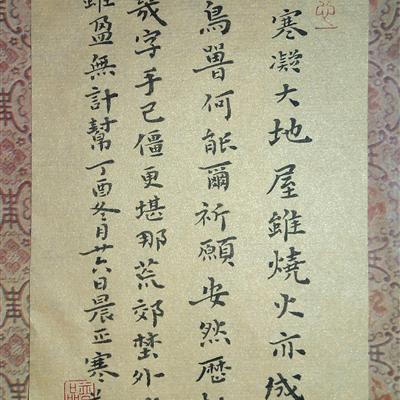 寒凝大地屋雖燒火亦成
鳥獸何能爾祈願安然歷
幾字手已僵更堪那荒郊野外
雖盈無計幫丁酉冬月廿六日晨正寒